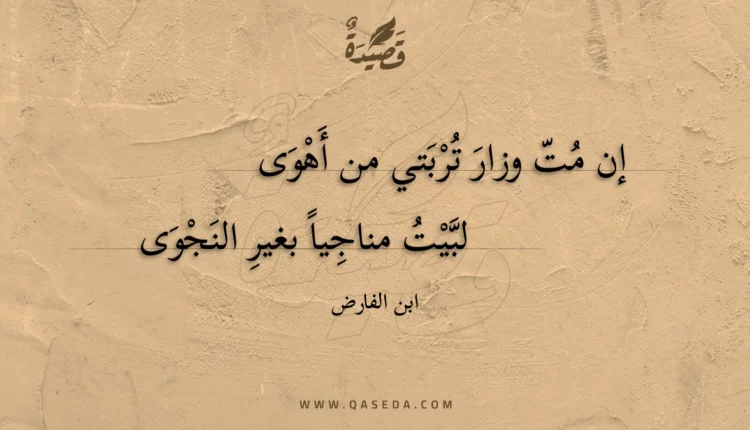 قَصِيدَةٌ
إن مُتّ وزارَ تُرْبَتي من أَهْوَى
لبَّيْتُ مناجِياً بغيرِ النَجْوَى
ابن الفارض
WWW.QASEDA.COM